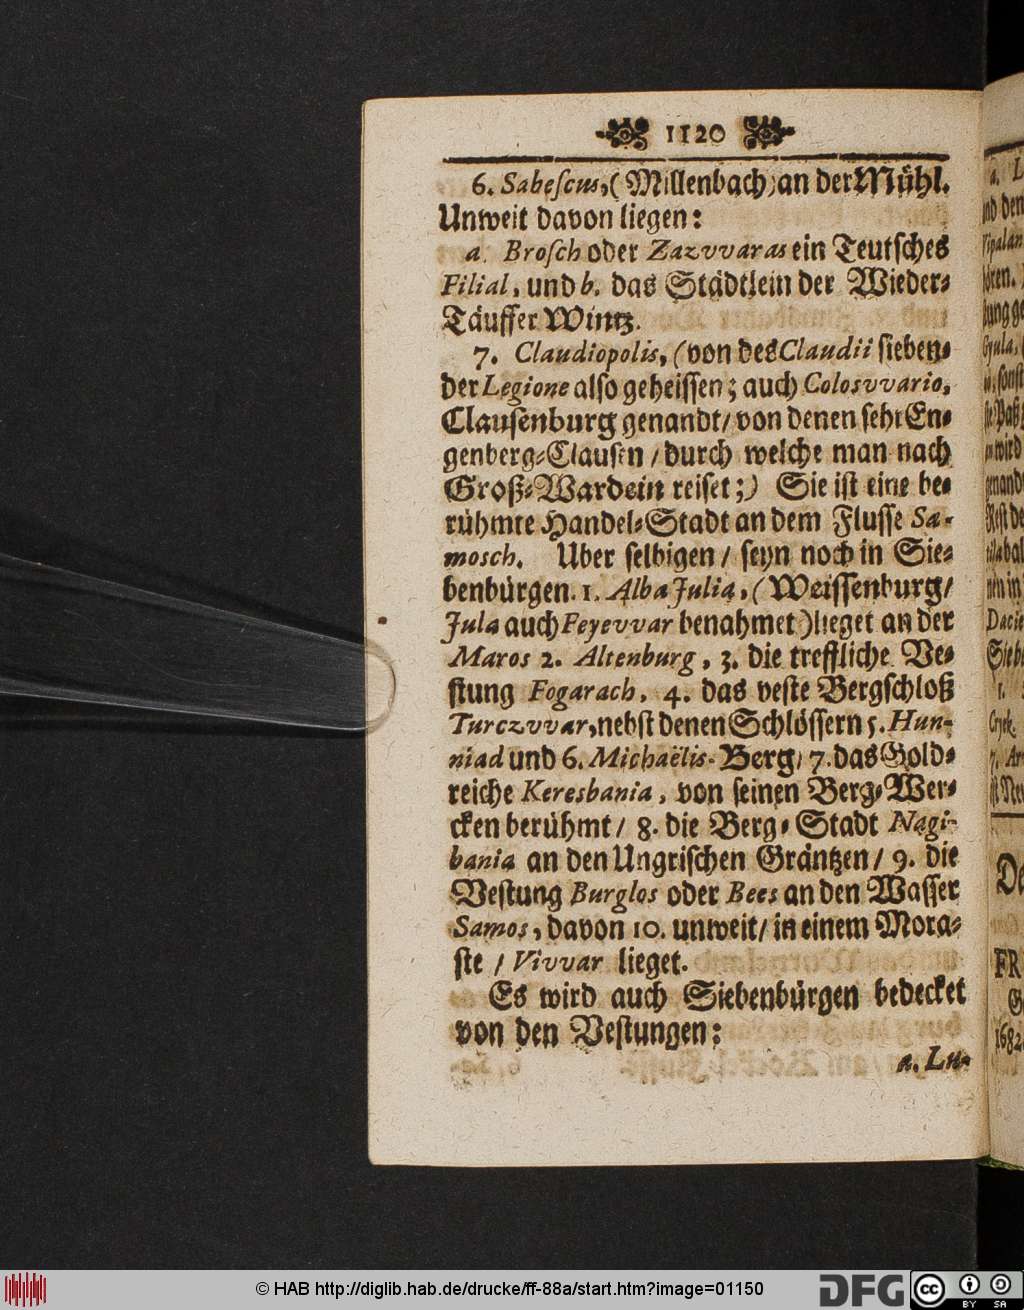 1120
6. Sabeſcus, (Millenbach) an der Mühl.
Unweit davon liegen:
a. Broſch oder Zazvvaras ein Teutſches
Filial, und b. das Städtlein der Wieder-
Täuffer Wintz.
7. Claudiopolis, (von des Claudii ſieben-
der Legione alſo geheiſſen; auch Colosvvario,
Clauſenburg genandt/ von denen ſehr En-
genberg-Clauſen / durch welche man nach
Groß-Wardein reiſet;) Sie iſt eine be-
rühmte Handel-Stadt an dem Fluſſe Sa-
mosch. Uber ſelbigen / ſeyn noch in Sie-
benbürgen. 1. Alba Julia, (Weiſſenburg/
Jula auch Feyevvar benahmet) lieget an der
Maros 2. Altenburg, 3. die treffliche Ve-
ſtung Fogarach, 4. das veſte Bergſchloß
Turczvvar, nebſt denen Schlöſſern 5. Hun-
niad und 6. Michaëlis-Berg/ 7. das Gold-
reiche Keresbania, von ſeinen Berg-Wer-
cken berühmt/ 8. die Berg-Stadt Nagi-
bania an den Ungriſchen Gräntzen/ 9. die
Veſtung Burglos oder Bees an den Waſſer
Samos, davon 10. unweit/ in einem Mora-
ſte / Vivvar lieget.
Es wird auch Siebenbürgen bedecket
von den Veſtungen:
a. Lu-
© HAB http://diglib.hab.de/drucke/ff-88a/start.htm?image=01150
DFG
cc BY SA